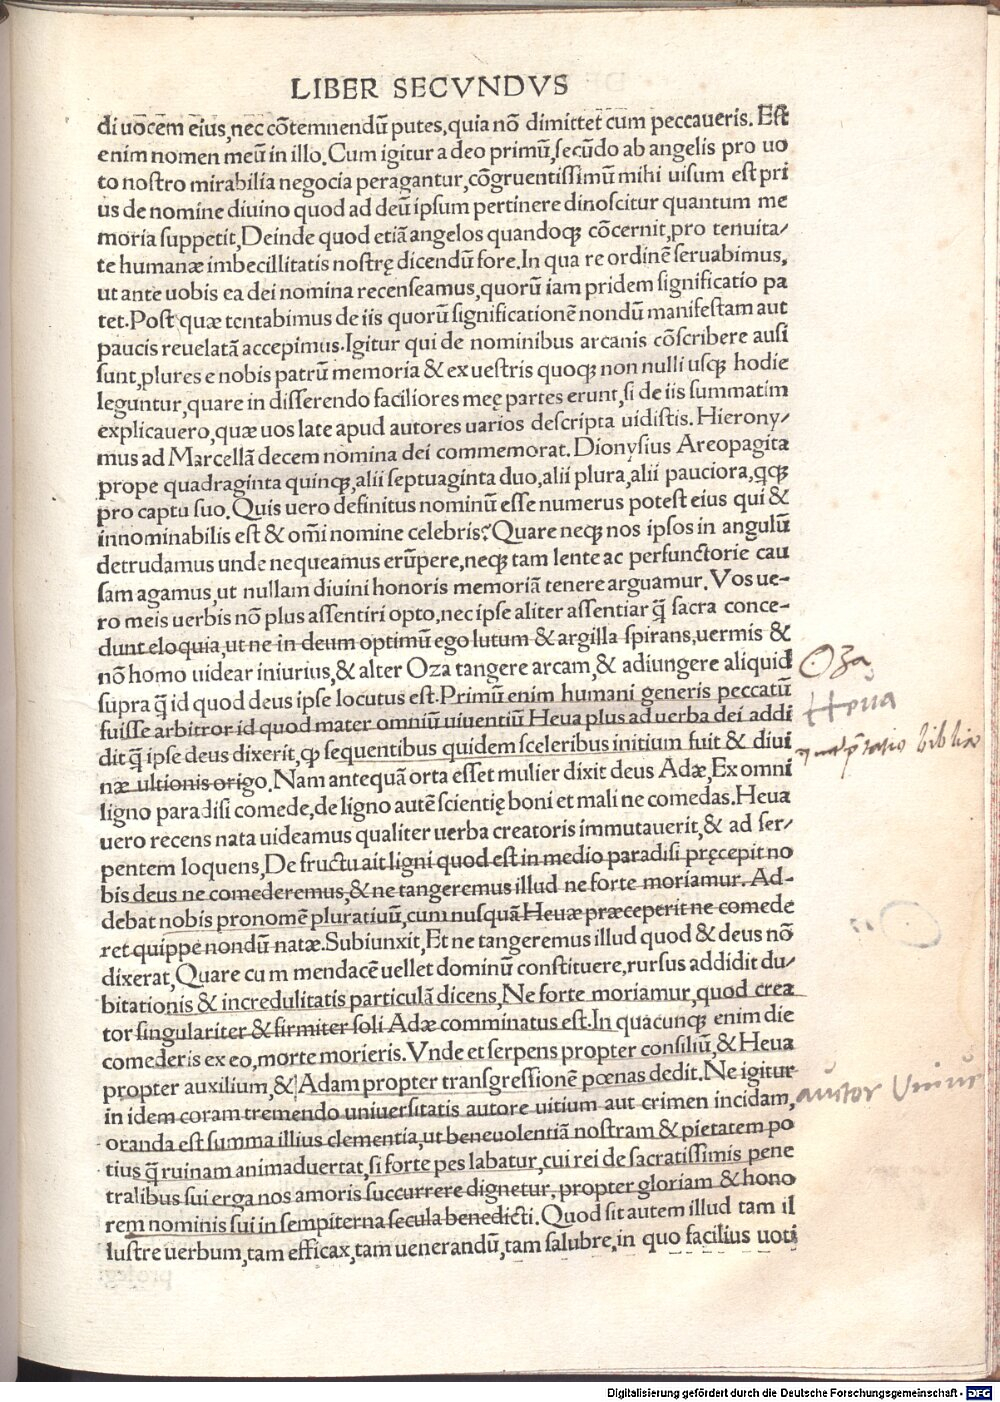 LIBER SECVNDVS
di uōcem eius,nec cōtemnendū putes,quia nō dimittet cum peccaueris. Est
enim nomen meū in illo.Cum igitur a deo primū,secūdo ab angelis pro uo
to nostro mirabilia negocia peragantur,cōgruentissimū mihi uisum est pri
us de nomine diuino quod ad deū ipsum pertinere dinoscitur quantum me
moria suppetit,Deinde quod etiā angelos quandoqꝫ cōcernit,pro tenuita/
te humanæ imbecillitatis nostrę dicendū fore.In qua re ordinē seruabimus,
ut ante uobis ea dei nomina recenseamus,quorū iam pridem significatio pa
tet.Post quæ tentabimus de iis quorū significationē nondū manifestam aut
paucis reuelatā accepimus.Igitur qui de nominibus arcanis cōscribere ausi
sunt,plures e nobis patrū memoria & ex uestris quoqꝫ non nulli usqꝫ hodie
leguntur,quare in disserendo faciliores meę partes erunt,si de iis summatim
explicauero,quæ uos late apud autores uarios descripta uidistis.Hierony/
mus ad Marcellā decem nomina dei commemorat.Dionysius Areopagita
prope quadraginta quinqꝫ,alii septuaginta duo,alii plura,alii pauciora,qqꝫ
pro captu suo.Quis uero definitus nominū esse numerus potest eius qui &
innominabilis est & omī nomine celebris?Quare neqꝫ nos ipsos in angulū
detrudamus unde nequeamus erūpere,neqꝫ tam lente ac perfunctorie cau
sam agamus,ut nullam diuini honoris memoriā tenere arguamur.Vos ue-
ro meis uerbis nō plus assentiri opto,nec ipse aliter assentiar q̄ sacra conce-
dunt eloquia,ut ne in deum optimū ego lutum & argilla spirans,uermis &
nō homo uidear iniurius,& alter Oza tangere arcam,& adiungere aliquid
Oza
supra q̄ id quod deus ipse locutus est.Primū enim humani generis peccatū
Heua
fuisse arbitror id quod mater omniū uiuentiū Heua plus ad uerba dei addi
dit q̄ ipse deus dixerit,qꝑ sequentibus quidem sceleribus initium fuit & diui
biblia
næ ultionis origo.Nam antequā orta esset mulier dixit deus Adæ,Ex omni
ligno paradisi comede,de ligno autē scientię boni et mali ne comedas.Heua
uero recens nata uideamus qualiter uerba creatoris immutauerit,& ad ser/
pentem loquens,De fructu ait ligni quod est in medio paradisi pręcepit no
bis deus ne comederemus,& ne tangeremus illud ne forte moriamur. Ad-
debat nobis pronomē pluratiuū,cum nusquā Heuæ præceperit ne comede
ret quippe nondū natæ.Subiunxit,Et ne tangeremus illud quod & deus nō
dixerat,Quare cum mendacē uellet dominū constituere,rursus addidit du/
bitationis & incredulitatis particulā dicens,Ne forte moriamur,quod crea
tor singulariter & firmiter soli Adæ comminatus est.In quacunqꝫ enim die
comederis ex eo,morte morieris.Vnde et serpens propter consiliū,& Heua
propter auxilium,& Adam propter transgressionē pœnas dedit.Ne igitur
auctor Vniuer
in idem coram tremendo uniuersitatis autore uitium aut crimen incidam,
oranda est summa illius clementia,ut beneuolentiā nostram & pietatem po
tius q̄ ruinam animaduertat,si forte pes labatur,cui rei de sacratissimis pene
tralibus sui erga nos amoris succurrere dignetur,propter gloriam & hono
rem nominis sui in sempiterna secula benedicti.Quod sit autem illud tam il
lustre uerbum,tam efficax,tam uenerandū,tam salubre,in quo facilius uoti
Digitalisierung gefördert durch die Deutsche Forschungsgemeinschaft - DFG